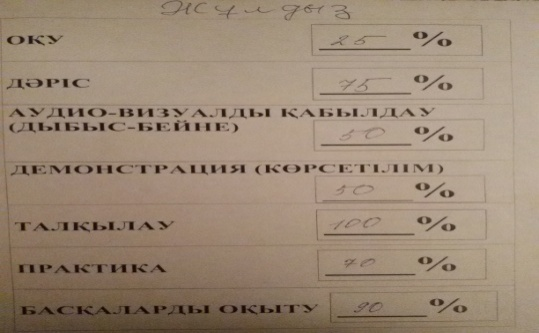 Жұлдыз
ОҚУ 25 %
ДӘРІС 75 %
АУДИО-ВИЗУАЛДЫ ҚАБЫЛДАУ
(ДЫБЫС-БЕЙНЕ) 50 %
ДЕМОНСТРАЦИЯ (КӨРСЕТІЛІМ)
50 %
ТАЛҚЫЛАУ 100 %
ПРАКТИКА 70 %
БАСҚАЛАРДЫ ОҚЫТУ 90 %